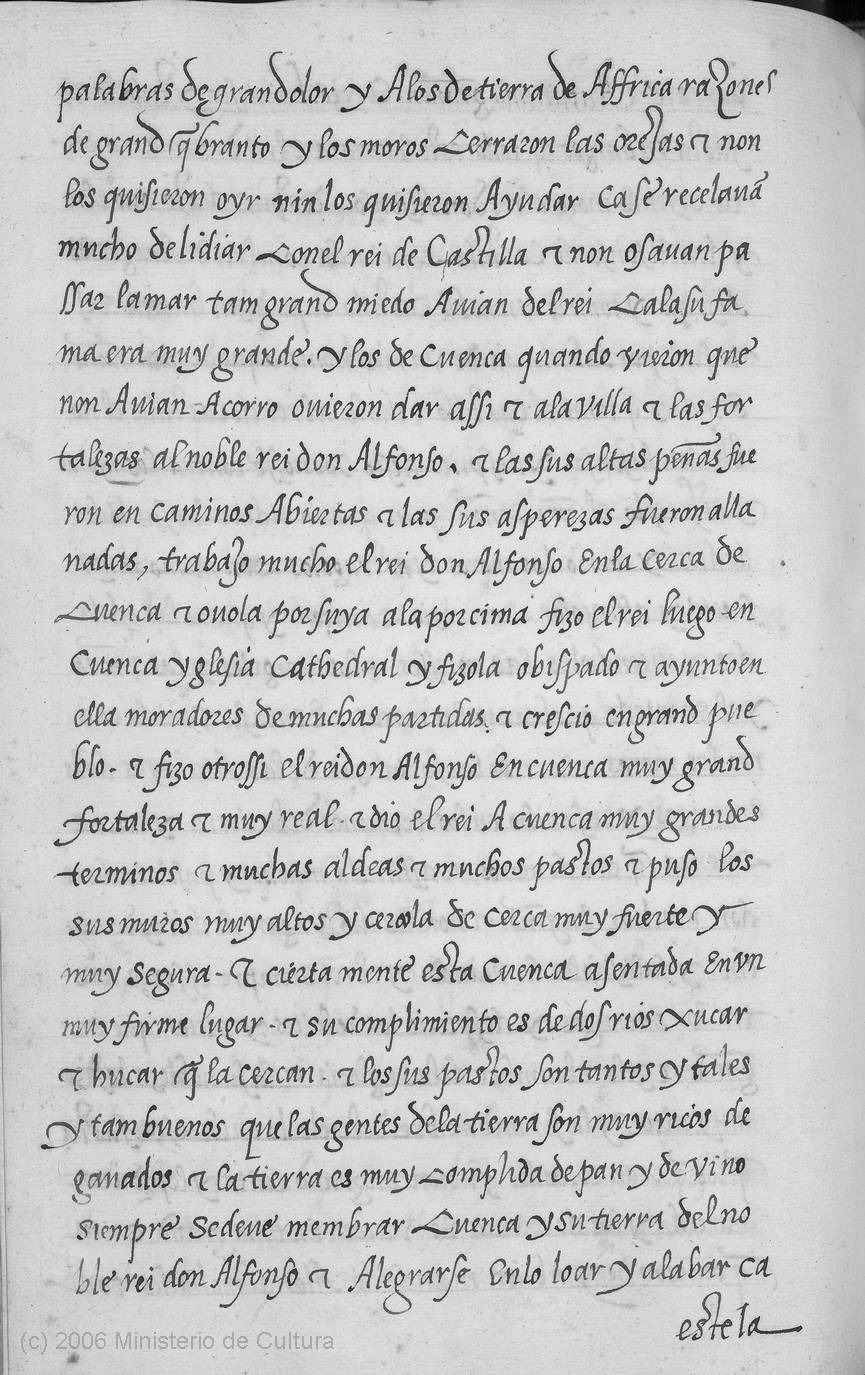 palabras de grandolor y Alos detierra de Affrica razones
de grand q̃branto y los moros Cerraron las orejas ⁊ non
los quisieron oyr nin los quisieron Ayudar Ca se recelauã
mucho delidiar Conel rei de Castilla ⁊ non osauan pa
ssar lamar tamgrand miedo Auian delrei Calasufa
ma era muy grande. y los de Cuenca quando vieron que
non Auian Acorro ouieron dar assi ⁊ ala villa ⁊ las for
talezas alnoble rei don Alfonso, ⁊ las sus altas penãs fue
ron en caminos Abiertas ⁊ las sus asperezas fueron alla
nadas, trabajo mucho el rei don Alfonso Enla cerca de
Cuenca ⁊ ouola porsuya ala porcima fizo elrei luego en
Cuenca yglesia Cathedral y fizola obispado ⁊ ayunto en
ella moradores de muchas partidas. ⁊ crescio engrand pue
blo. ⁊ fizo otrossi elreidon Alfonso En cuenca muy grand
fortaleza ⁊ muy real. ⁊ dio el rei A cuenca muy grandes
terminos ⁊ muchas aldeas ⁊ muchos pastos ⁊ puso los
sus muros muy altos y cercola de cerca muy fuerte y
muy segura. ⁊ cierta mente esta Cuenca asentada Envn
muy firme lugar. ⁊ su complimiento es de dos rios Xucar
⁊ hucar q̃ la cercan. ⁊ lossus pastos son tantos y tales
y tambuenos que las gentes dela tierra son muy ricos de
ganados ⁊ la tierra es muy Complida depan y de vino
siempre sedeue membrar Cuenca y su tierra delno
ble rei don Alfonso ⁊ Alegrarse Enlo loar y alabar ca
estela
(c) 2006 Ministerio de Cultura